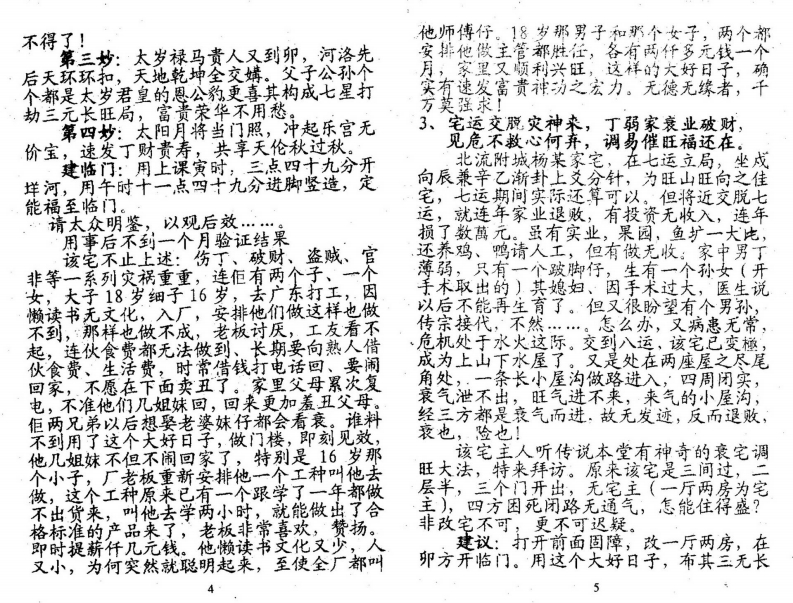 不得了！
第三妙：太岁禄马貴人又到卯，河洛先
后天环环扣，天地乾坤全交媾。父子公孙个
个都是太岁君皇的恩公豹更喜其构成七星打
劫三元长旺局，富貴荣华不用愁。
第四妙：太阳月将当门照，冲起乐宫无
价宝，速发丁财貴寿，共享天伦秋过秋。
建临门：用上课寅时，三点四十九分开
坢河，用午时十一点四十九分进脚竖造，定
能福至临门。
请太众明鉴，以观后效……。
用事后不到一个月验证结果
该宅不止上述：伤丁、破财、盗贼、官
非等一系列灾祸重重，连佢有两个子、一个
女，大子18岁细子16岁，去广东打工，因
懒读书无文化，入厂，安排他们做这样也做
不到，那样也做不成，老板讨厌，工友看不
起，连伙食费都无法做到、长期要向熟人借
伙食费、生活费，时常借钱打电话回、要闹
回家，不愿在下面卖丑了。家里父母累次复
电，不准他们几姐妹回，回来更加羞丑父母。
佢两兄弟以后想娶老婆妹仔都会看衰。谁料
不到用了这个大好日子，做门楼，即刻见效，
他几姐妹不但不闹回家了，特别是16岁那
个小子，厂老板重新安排他一个工种叫他去
做，这个工种原来已有一个跟学了一年都做
不出货来，叫他去学两小时，就能做出了合
格标准的产品来了，老板非常喜欢，赞扬。
即时提薪仟几元钱。他懒读书文化又少，人
又小，为何突然就聪明起来，至使全厂都叫
4
他师傅仔。18岁那男子和那个女子，两个都
安排他做主管都胜任，各有两仟多元钱一个
月，家里又顺利兴旺，这样的大好日子，确
实有速发富貴神功之宏力。无德无缘者，千
万莫强求！
3、宅运交脱灾神来，丁弱家衰业破财，
见危不救心何弃，调易催旺福还在。
北流附城杨某家宅，在七运立局，坐戌
向辰兼辛乙渐卦上爻分针，为旺山旺向之住
宅，七运期间实际还算可以。但将近交脱七
运，就连年家业退败，有投资无收入，连年
损了数萬元。虽有实业，果园，鱼圹一大坨，
还养鸡、鸭请人工，但有做无收。家中男丁
薄弱，只有一个跛脚仔，生有一个孙女（开
手术取出的）其媳妇、因手术过大，医生说
以后不能再生育了。但又很盼望有个男孙，
传宗接代，不然……。怎么办，又病患无常，
危机处于水火这际。交到八运，该宅已变極，
成为上山下水屋了。又是处在两座屋之尽尾
角处，一条长小屋沟做路进入，四周闭实，
衰气泄不出，旺气进不来，来气的小屋沟，
经三方都是衰气而进，故无发迹，反而退败，
衰也，险也！
该宅主人听传说本堂有神奇的衰宅调
旺大法，特来拜访。原来该宅是三间过，二
层半，三个门开出，无宅主（一厅两房为宅
主），四方困死闭路无通气，怎能住得盛？
非改宅不可，更不可迟疑。
建议：打开前面固障，改一厅两房，在
卯方开临门。用这个大好日子，布其三无长
5